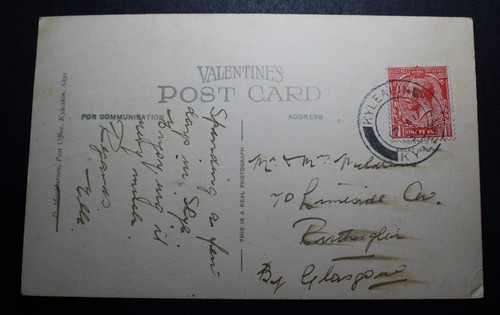 VALENTINE'S
POST CARD
FOR COMMUNICATION
ADDRESS
Post Office, Kyleakin, Skye
THIS IS A REAL PHOTOGRAPH
KYLEAKIN
KY
ONE PENNY
Spending a few
days in Skye
Enjoying it
very much.
Regards
Ella
Mr & Mrs
70 Limeside Av.
Rutherglen
By Glasgow